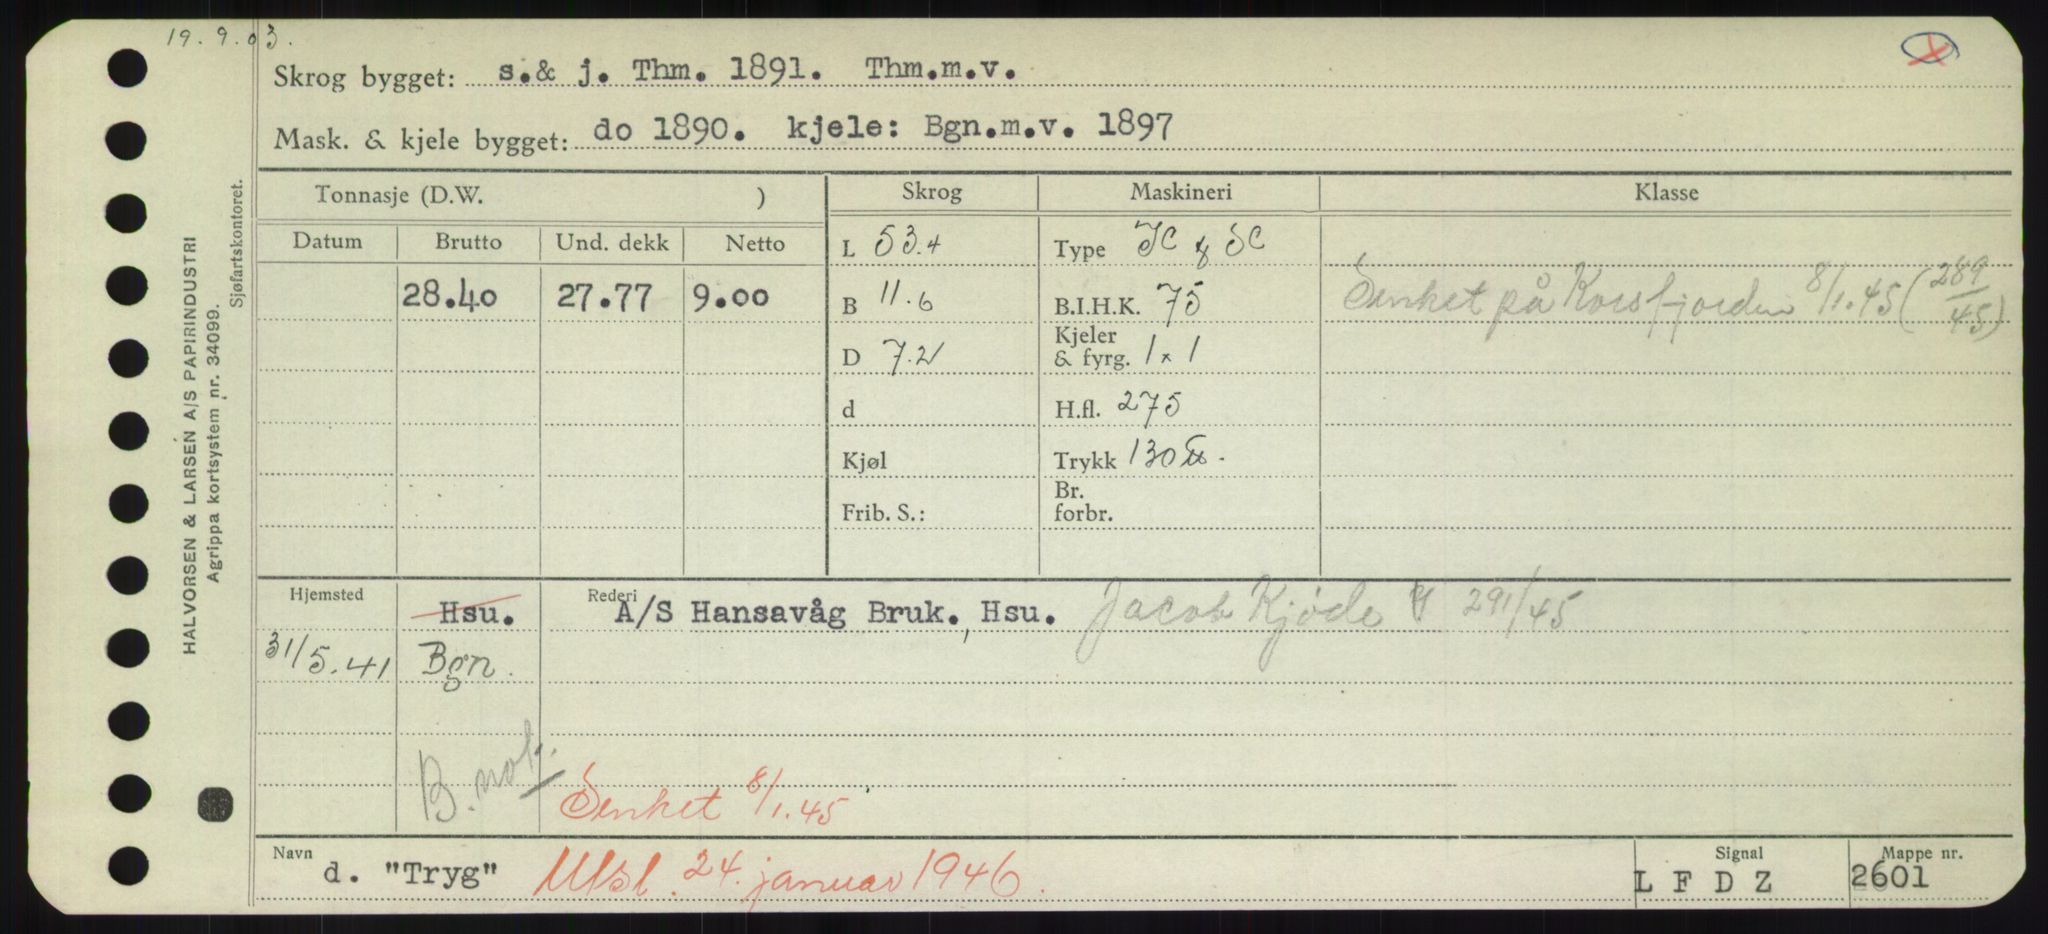 19.9.03.
Skrog bygget: s.& j. Thm. 1891. Thm.m.v.
Mask. & kjele bygget: do 1890. kjele: Bgn.m.v. 1897
Tonnasje (D.W. ) Skrog Maskineri Klasse
Datum Brutto Und. dekk Netto L 53.4 Type
28.40 27.77 9.00 B 11.6 B.I.H.K. 75 Senket på Korsfjorden 8/1.45 (289/45)
D 7.2 Kjeler & fyrg. 1 x 1
d H.fl. 275
Kjøl Trykk 130
Frib. S.: Br. forbr.
Hjemsted Hsu. Rederi A/S Hansavåg Bruk., Hsu. Jacob Kjøde 291/45
31/5.41 Bgn.
B.
Senket 8/1.45
Navn d. "Tryg" Utsl. 24. januar 1946. Signal L F D Z Mappe nr. 2601
HALVORSEN & LARSEN A/S PAPIRINDUSTRI
Agrippa kortsystem nr. 34099.
Sjøfartskontoret.